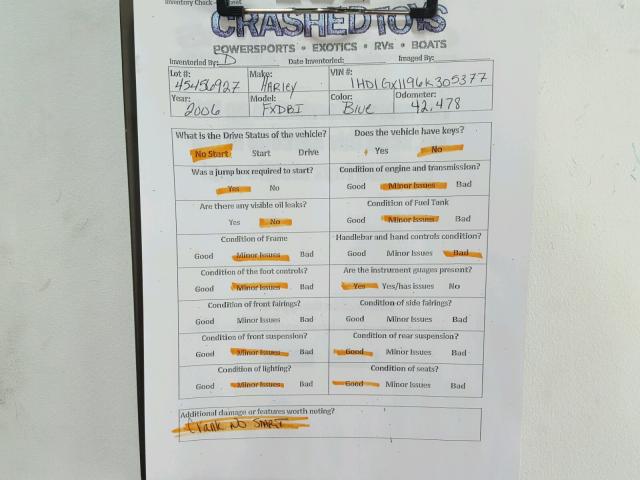 Inventory Check -
CRASHEDTOYS
POWERSPORTS • EXOTICS • RVs • BOATS
Inventoried By: D Date Inventoried: Imaged By:
Lot #: 45456927 Make: HARLEY VIN #: 1HD1GX1196K305377
Year: 2006 Model: FXDBI Color: Blue Odometer: 42,478
What is the Drive Status of the vehicle? Does the vehicle have keys?
No Start Start Drive Yes No
Was a jump box required to start? Condition of engine and transmission?
Yes No Good Minor Issues Bad
Are there any visible oil leaks? Condition of Fuel Tank
Yes No Good Minor Issues Bad
Condition of Frame Handlebar and hand controls condition?
Good Minor Issues Bad Good Minor Issues Bad
Condition of the foot controls? Are the instrument guages present?
Good Minor Issues Bad Yes Yes/has issues No
Condition of front fairings? Condition of side fairings?
Good Minor Issues Bad Good Minor Issues Bad
Condition of front suspension? Condition of rear suspension?
Good Minor Issues Bad Good Minor Issues Bad
Condition of lighting? Condition of seats?
Good Minor Issues Bad Good Minor Issues Bad
Additional damage or features worth noting?
Crank NO START